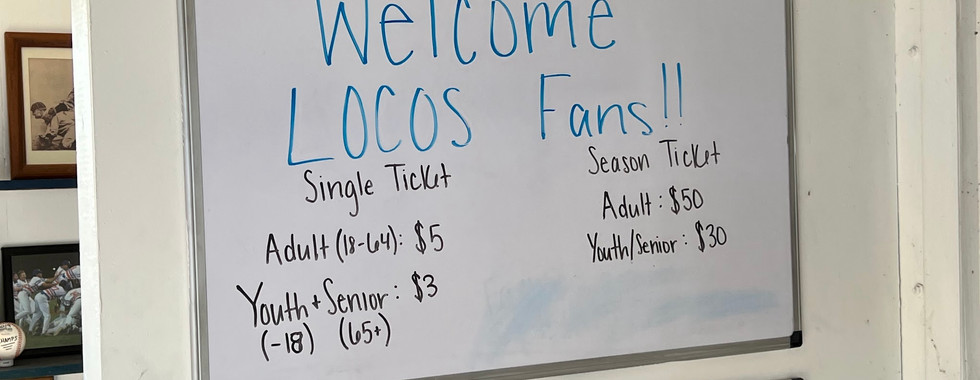 Welcome
LOCOS Fans!!
Single Ticket
Adult (18-64): $5
Youth + Senior: $3
(-18) (65+)
Season Ticket
Adult: $50
Youth/Senior: $30
CHAMPS